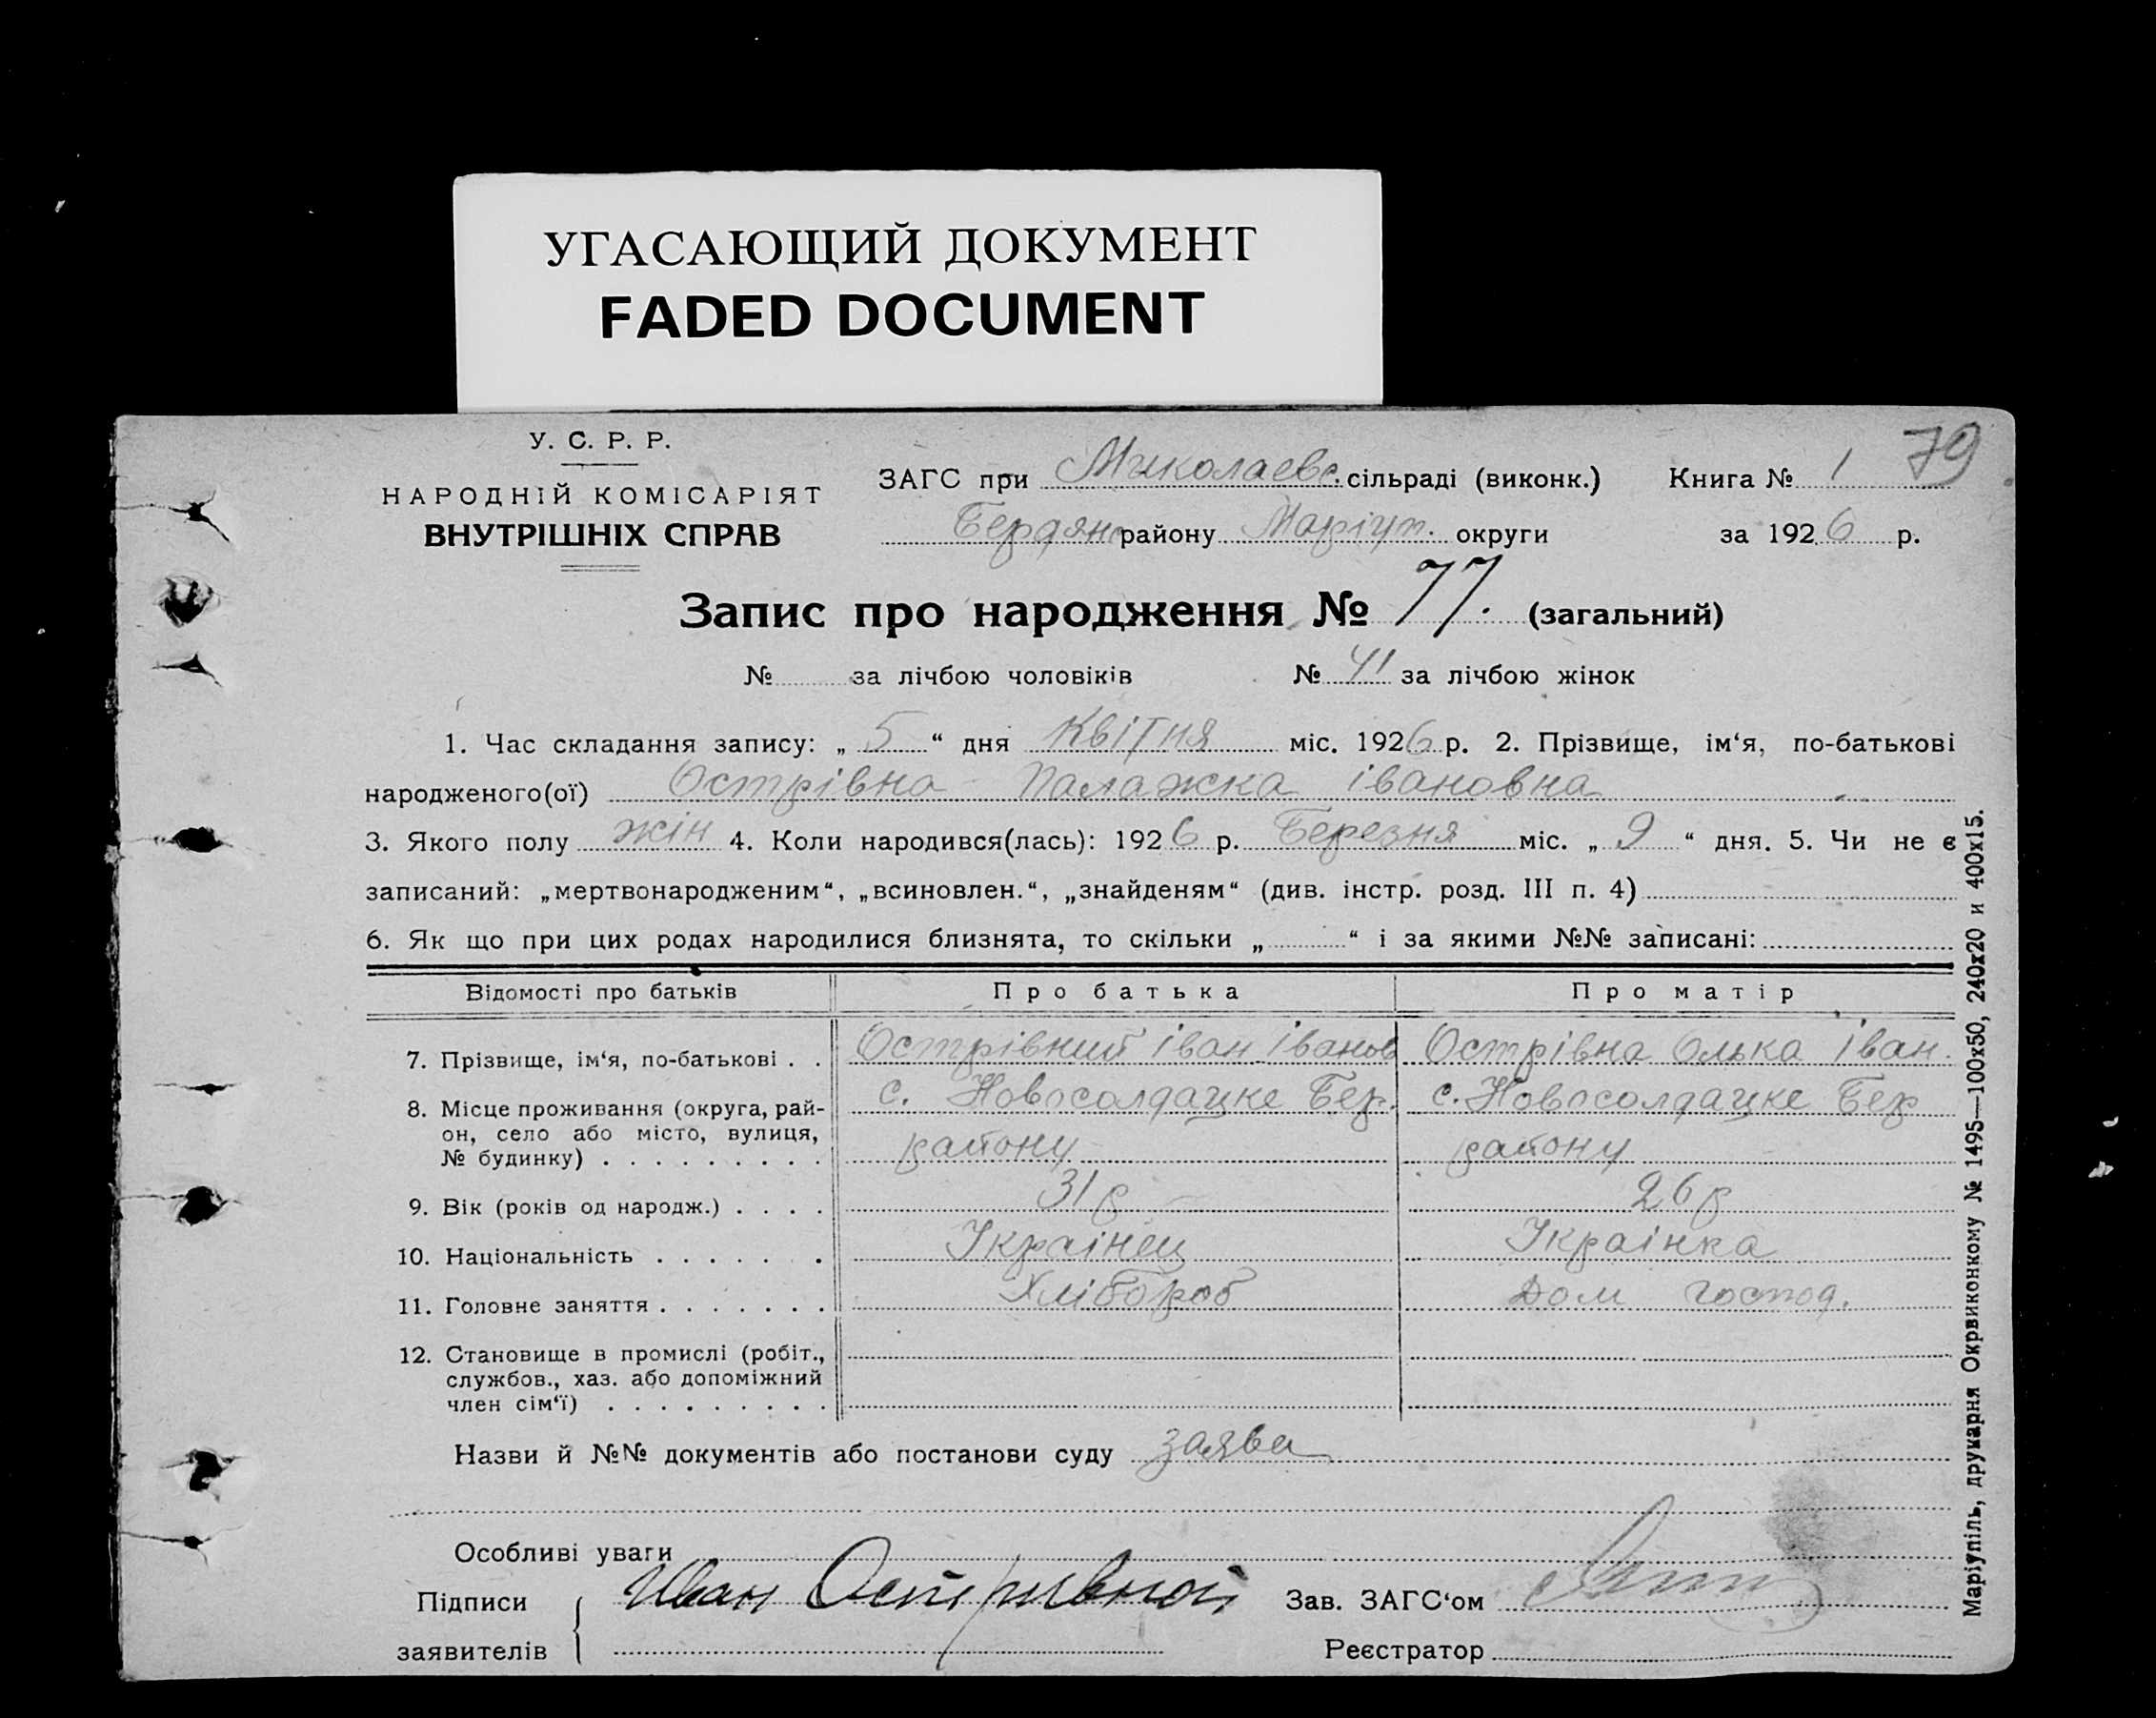 УГАСАЮЩИЙ ДОКУМЕНТ
FADED DOCUMENT
79
У. С. Р. Р.
НАРОДНІЙ КОМІСАРІЯТ
ВНУТРІШНІХ СПРАВ
ЗАГС при Миколаевс. сільраді (виконк.) Книга № 1
Бердянс району Маріуп. округи за 1926 р.
Запис про народження № 77. (загальний)
№ за лічбою чоловіків № 41 за лічбою жінок
1. Час складання запису: „ 5 “ дня Квітня міс. 1926 р. 2. Прізвище, ім‘я, по-батькові
народженого(ої) Острівна Палажка івановна
3. Якого полу жін 4. Коли народився(лась): 1926 р. Березня міс. „ 9 “ дня. 5. Чи не є
записаний: „мертвонародженим“, „всиновлен.“, „знайденям“ (див. інстр. розд. III п. 4)
6. Як що при цих родах народилися близнята, то скільки „ “ і за якими №№ записані:
Відомості про батьків Про батька Про матір
7. Прізвище, ім‘я, по-батькові . . Острівний іван іванов Острівна Олька іван.
8. Місце проживання (округа, рай- с. Новосолдацке Бер. с. Новосолдацке Бер
он, село або місто, вулиця,
№ будинку) . . . . . . . . . району району
9. Вік (років од народж.) . . . . 31 р 26 р
10. Національність . . . . . . . Українец Українка
11. Головне заняття . . . . . . . Хлібороб Дом господ.
12. Становище в промислі (робіт.,
службов., хаз. або допоміжний
член сім‘ї) . . . . . . . . .
Назви й №№ документів або постанови суду заява
Особливі уваги
Підписи Иван Остривной Зав. ЗАГС‘ом
заявителів Реєстратор
Маріупіль, друкарня Окрвиконкому № 1495—100х50, 240х20 и 400х15.